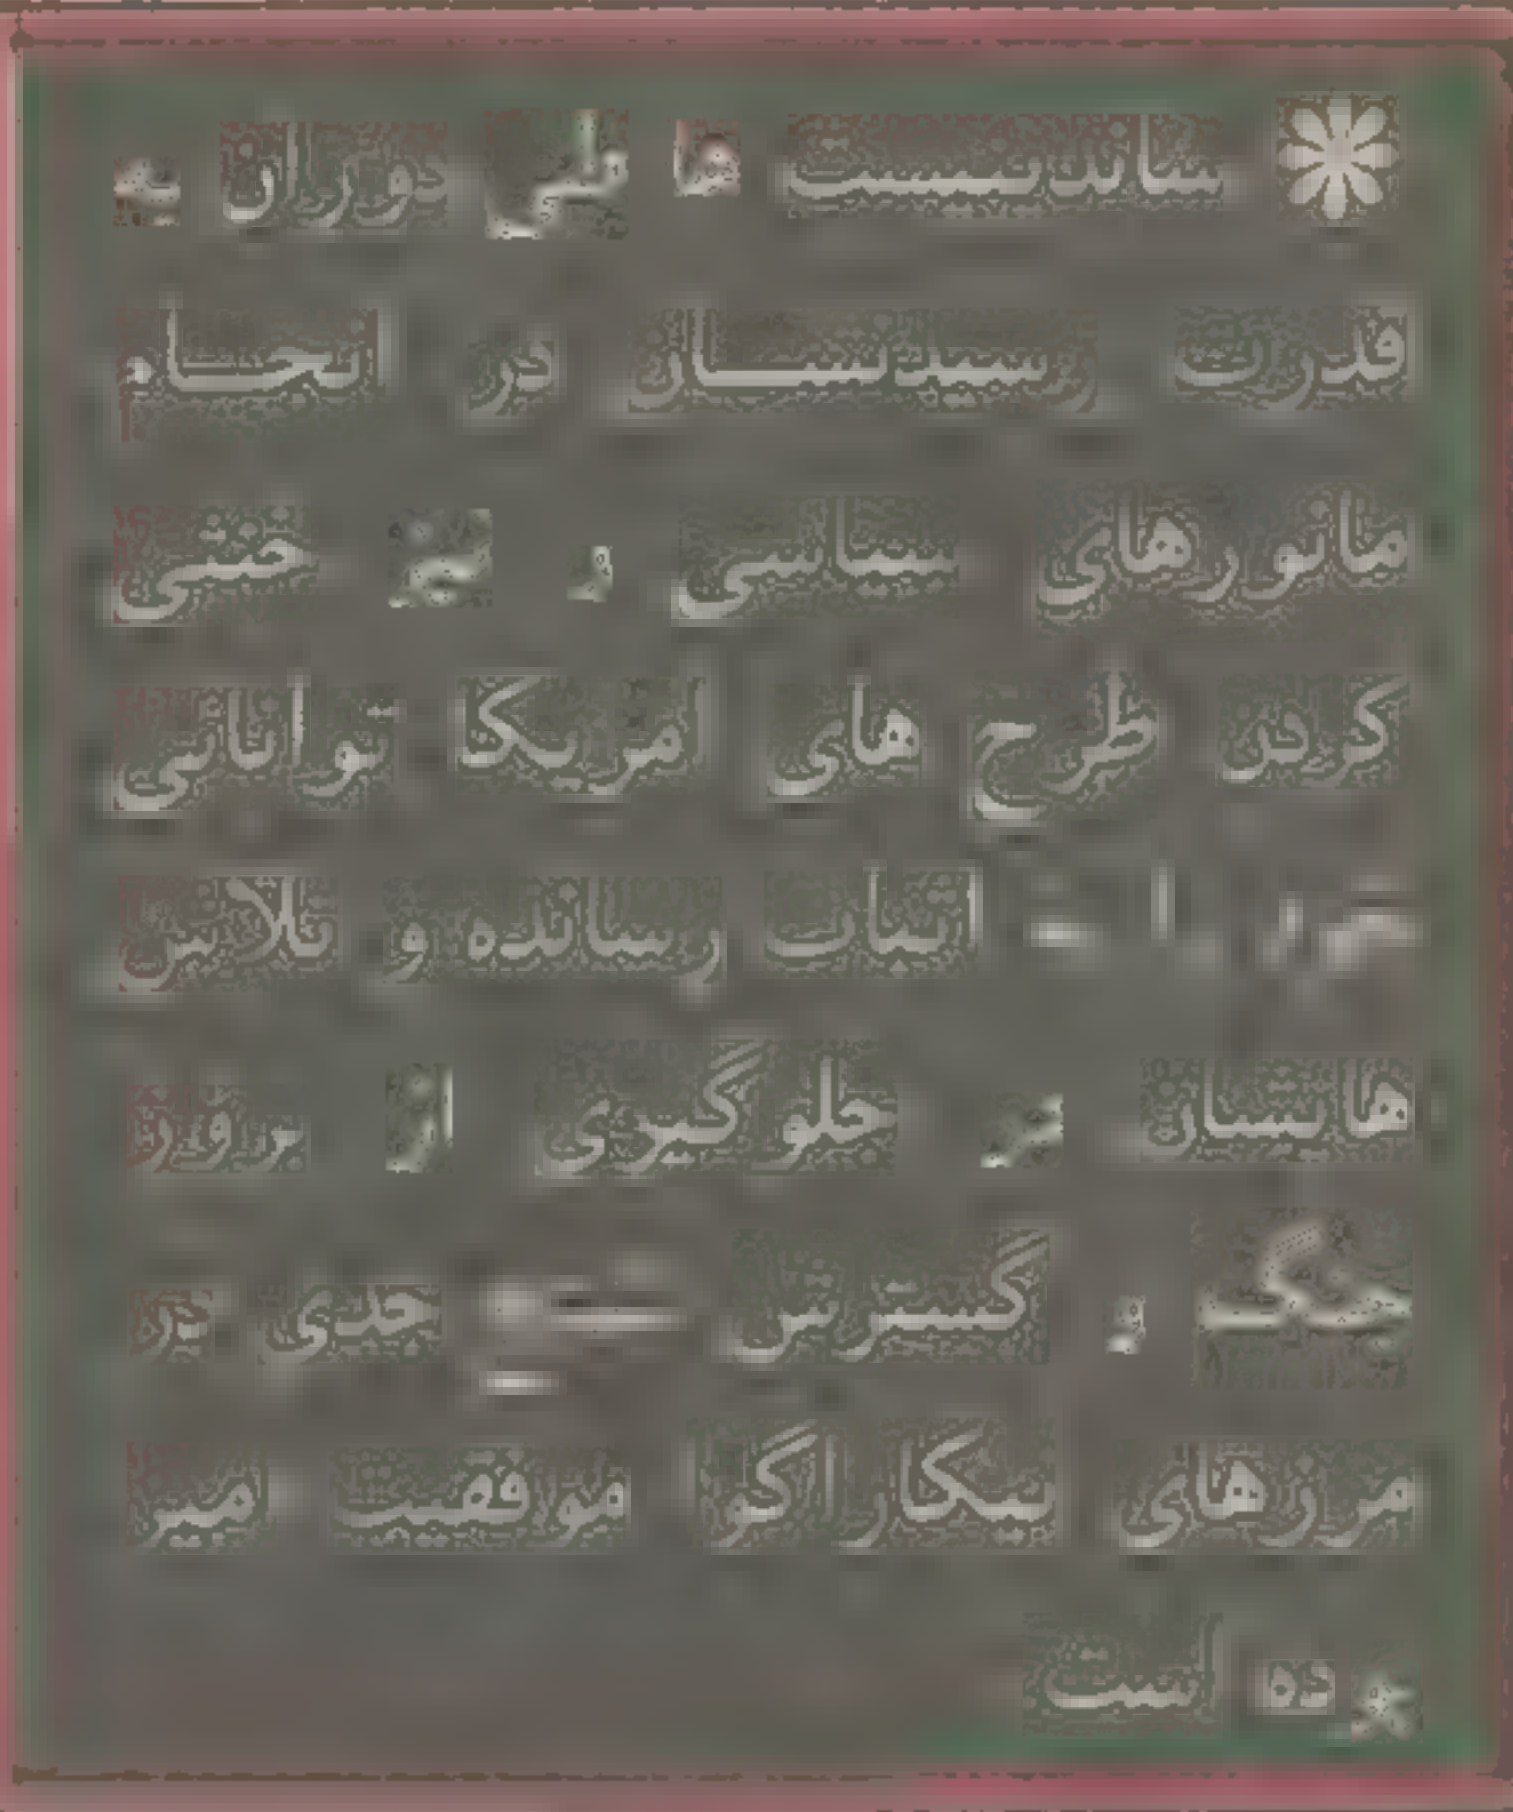 ساندنیست ها طی دوران به
قدرت رسیدنشان در انجام
مانورهای سیاسی و خنثی
کردن طرح های امریکا توانائی
اثبات رسانده و تلاش
هایشان در جلوگیری از بروز
جنگ و گسترش جدی در
مرزهای نیکاراگو موفقیت آمیز
بوده است